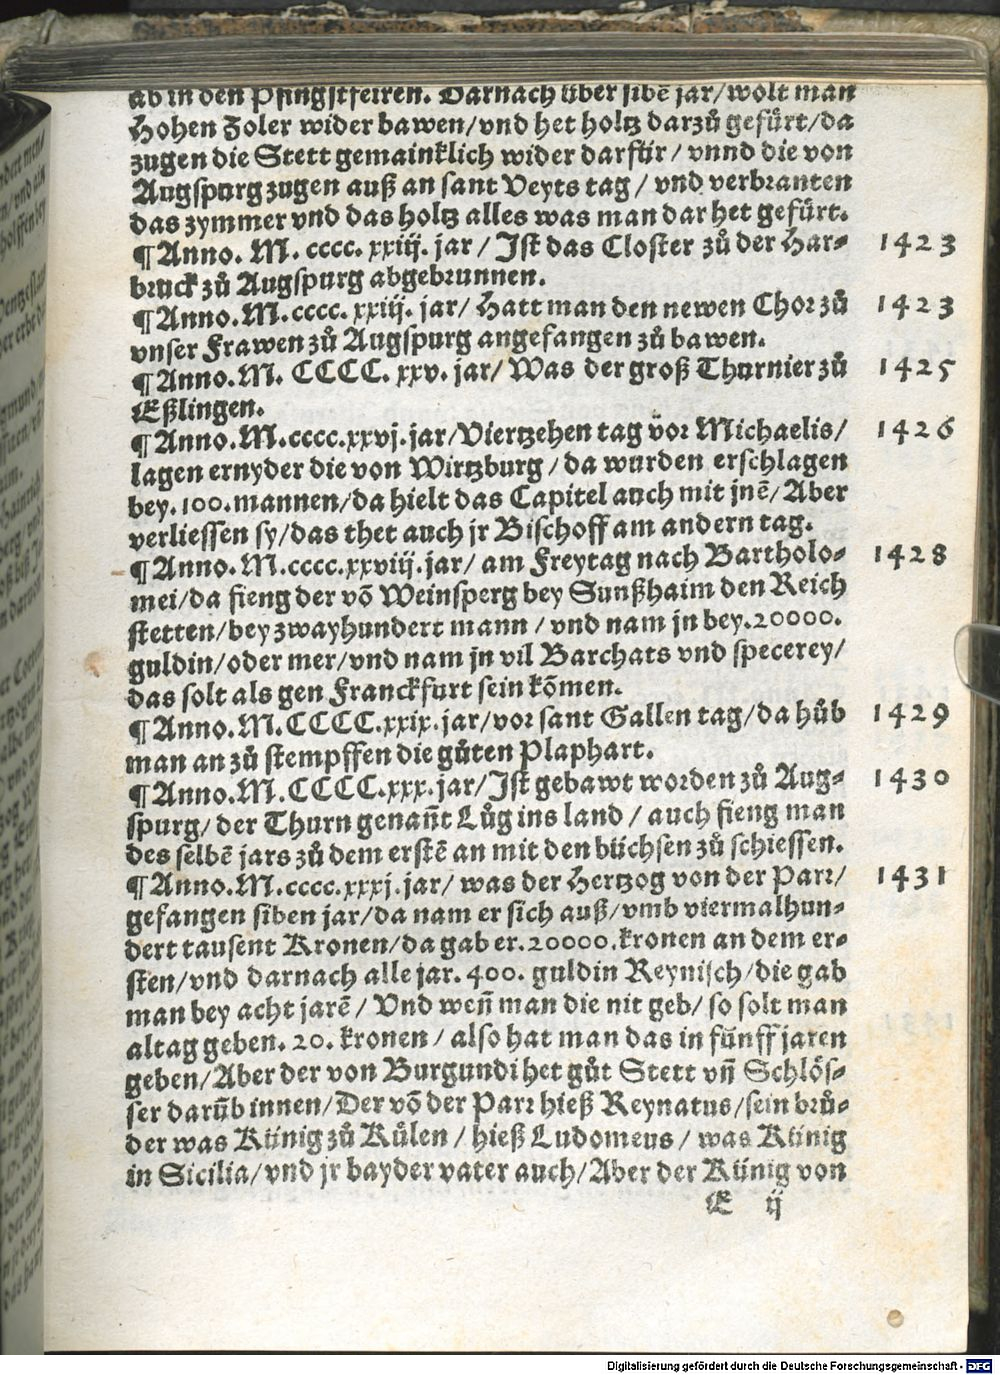 ab in den Pfingstfeiren. Darnach über sibē jar/wolt man
Hohen Zoler wider bawen/vnd het holtz darzů gefürt/da
zugen die Stett gemainklich wider darfür / vnnd die von
Augspurg zugen auß an sant Veyts tag / vnd verbranten
das zymmer vnd das holtz alles was man dar het gefürt.
¶Anno. M. cccc. xxiij. jar / Ist das Closter zů der Har- 1423
bruck zů Augspurg abgebrunnen.
¶Anno. M. cccc. xxiij. jar/ Hatt man den newen Chor zů 1423
vnser Frawen zů Augspurg angefangen zů bawen.
¶Anno. M. CCCC. xxv. jar/ Was der groß Thurnier zů 1425
Eßlingen.
¶Anno. M. cccc. xxvj. jar/Viertzehen tag vor Michaelis/ 1426
lagen ernyder die von Wirtzburg / da wurden erschlagen
bey. 100. mannen/da hielt das Capitel auch mit jnē/Aber
verliessen sy/das thet auch jr Bischoff am andern tag.
¶Anno. M. cccc. xxviij. jar/ am Freytag nach Bartholo- 1428
mei/da fieng der vō Weinsperg bey Sunßhaim den Reich
stetten/bey zwayhundert mann / vnd nam jn bey. 20000.
guldin/oder mer/vnd nam jn vil Barchats vnd specerey/
das solt als gen Franckfurt sein kōmen.
¶Anno. M. CCCC. xxix. jar/vor sant Gallen tag/da hůb 1429
man an zů stempffen die gůten Plaphart.
¶Anno. M. CCCC. xxx. jar/Ist gebawt worden zů Aug- 1430
spurg/ der Thurn genañt Lůg ins land / auch fieng man
des selbē jars zů dem erstē an mit den büchsen zů schiessen.
¶Anno. M. cccc. xxxj. jar/ was der Hertzog von der Parr/ 1431
gefangen siben jar/da nam er sich auß/vmb viermalhun-
dert tausent Kronen/da gab er. 20000. kronen an dem er-
sten/vnd darnach alle jar. 400. guldin Reynisch/die gab
man bey acht jarē / Vnd weñ man die nit geb/ so solt man
altag geben. 20. kronen / also hat man das in fünff jaren
geben/Aber der von Burgundi het gůt Stett vñ Schlös-
ser darūb innen/Der vō der Parr hieß Reynatus/sein brů-
der was Künig zů Kůlen / hieß Ludomeus / was Künig
in Sicilia/vnd jr bayder vater auch/Aber der Künig von
E ij
Digitalisierung gefördert durch die Deutsche Forschungsgemeinschaft - DFG